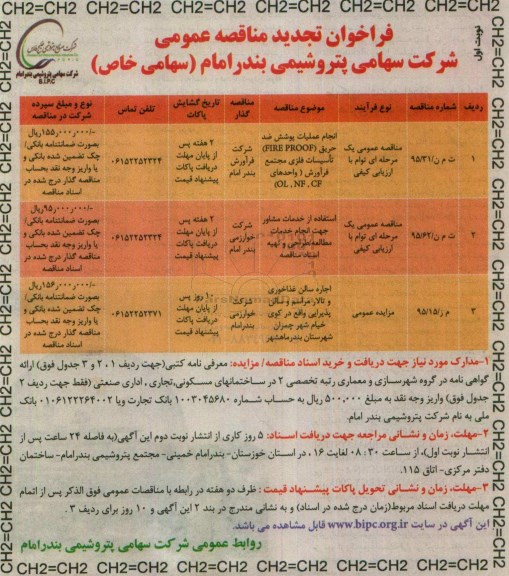 نوبت اول
فراخوان تجدید مناقصه عمومی
شرکت سهامی پتروشیمی بندرامام (سهامی خاص)
شرکت سهامی پتروشیمی بندرامام
B.I.P.C
ردیف
شماره مناقصه
نوع فرآیند
موضوع مناقصه
مناقصه گذار
تاریخ گشایش پاکات
تلفن تماس
نوع و مبلغ سپرده شرکت در مناقصه
۱
ت م ن/۹۵/۳۱
مناقصه عمومی یک
مرحله ای توام با
ارزیابی کیفی
انجام عملیات پوشش ضد
حریق (FIRE PROOF)
تأسیسات فلزی مجتمع
فرآورش ( واحدهای
OL , NF , CF)
شرکت
فرآورش
بندر امام
۲ هفته پس
از پایان مهلت
دریافت پاکات
پیشنهاد قیمت
۰۶۱۵۲۲۵۲۳۲۴
۱۵۵٫۰۰۰٫۰۰۰/-ریال
بصورت ضمانتنامه بانکی/
چک تضمین شده بانکی و
یا واریز وجه نقد بحساب
مناقصه گذار درج شده در
اسناد مناقصه
۲
ت م ن/۹۵/۶۲
مناقصه عمومی یک
مرحله ای توام با
ارزیابی کیفی
استفاده از خدمات مشاور
جهت انجام خدمات
مطالعه،طراحی و تهیه
اسناد مناقصه
شرکت
خوارزمی
بندر امام
۲ هفته پس
از پایان مهلت
دریافت پاکات
پیشنهاد قیمت
۰۶۱۵۲۲۵۲۳۲۴
۹۵٫۰۰۰٫۰۰۰/-ریال
بصورت ضمانتنامه بانکی/
چک تضمین شده بانکی و
یا واریز وجه نقد بحساب
مناقصه گذار درج شده در
اسناد مناقصه
۳
م ز/۹۵/۱۵
مزایده عمومی
اجاره سالن غذاخوری
و تالار مراسم و سالن
پذیرایی واقع در کوی
خیام شهر چمران
شهرستان بندرماهشهر
شرکت
خوارزمی
بندرامام
۱۰ روز پس
از پایان مهلت
دریافت پاکات
پیشنهاد قیمت
۰۶۱۵۲۲۵۲۳۷۱
۱۵۶٫۰۰۰٫۰۰۰/-ریال
بصورت ضمانتنامه بانکی/
چک تضمین شده بانکی و
یا واریز وجه نقد بحساب
مناقصه گذار درج شده در
اسناد مناقصه
۱-مدارک مورد نیاز جهت دریافت و خرید اسناد مناقصه/ مزایده: معرفی نامه کتبی(جهت ردیف ۱،۲ و ۳ جدول فوق) ارائه
گواهی نامه در گروه شهرسازی و معماری رتبه تخصصی ۲ در ساختمانهای مسکونی،تجاری ، اداری صنعتی (فقط جهت ردیف ۲
جدول فوق) واریز وجه نقد به مبلغ ۵۰۰,۰۰۰ ریال به حساب شماره ۱۰۰۳۰۴۵۶۸۰ بانک تجارت ویا ۰۱۰۶۱۲۲۲۶۴۰۰۲ بانک
ملی به نام شرکت پتروشیمی بندر امام.
۲-مهلت، زمان و نشانی مراجعه جهت دریافت اسناد: ۵ روز کاری از انتشار نوبت دوم این آگهی(به فاصله ۲۴ ساعت پس از
انتشار نوبت اول)، از ساعت ۸:۳۰ لغایت ۱۶ ، در استان خوزستان- بندرامام خمینی- مجتمع پتروشیمی بندرامام- ساختمان
دفتر مرکزی- اتاق ۱۱۵.
۳-مهلت، زمان و نشانی تحویل پاکات پیشنهاد قیمت : ظرف دو هفته در رابطه با مناقصات عمومی فوق الذکر پس از اتمام
مهلت دریافت اسناد مربوط(زمان درج شده در اسناد) و به نشانی مندرج در بند ۲ این آگهی و ۱۰ روز برای ردیف ۳ .
این آگهی در سایت www.bipc.org.ir قابل مشاهده می باشد.
روابط عمومی شرکت سهامی پتروشیمی بندرامام
CH2=CH2 CH2=CH2 CH2=CH2 CH2=CH2 CH2=CH2 CH2=CH2